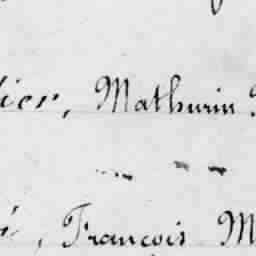 ier, Mathurin
, François M